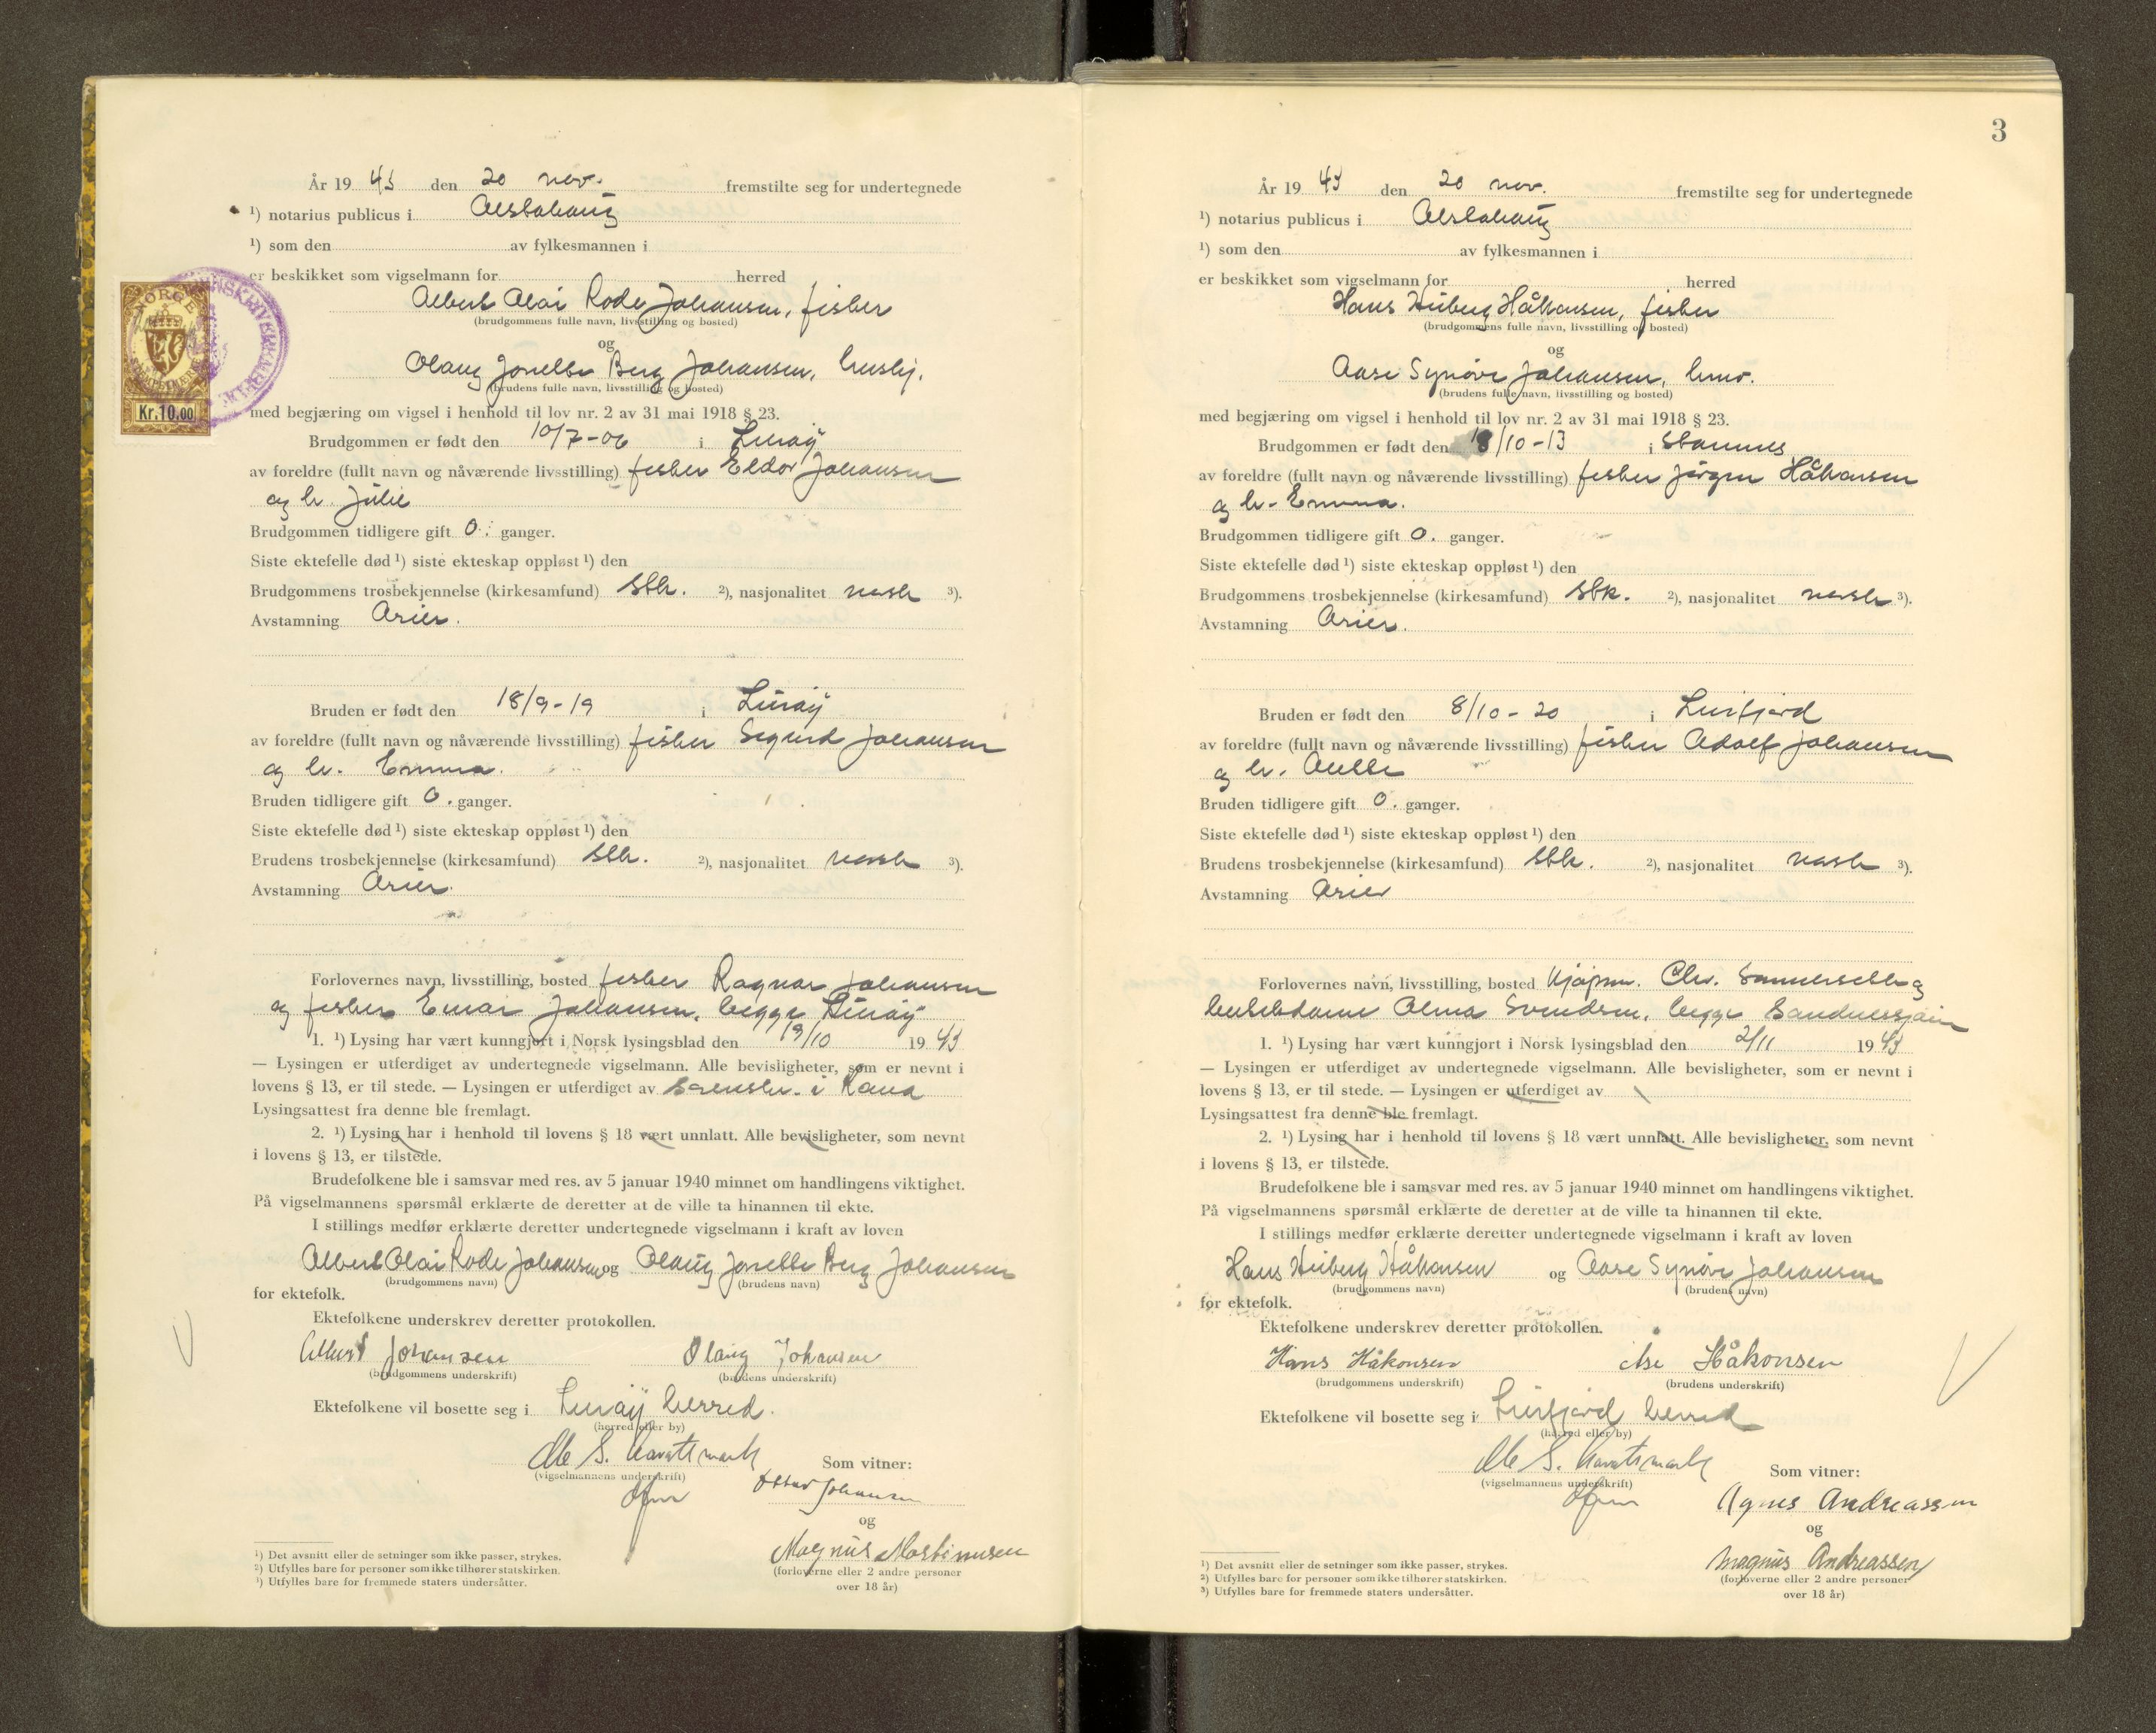 År 19 43 den 20 nov. fremstilte seg for undertegnede
¹) notarius publicus i Alstahaug
¹) som den av fylkesmannen i
er beskikket som vigselmann for herred
Albert Olai Rode Johansen, fisker
(brudgommens fulle navn, livsstilling og bosted)
og
Olaug Jonette Berg Johansen, husbj.
(brudens fulle navn, livsstilling og bosted)
NORGE
Kr.10.00
med begjæring om vigsel i henhold til lov nr. 2 av 31 mai 1918 § 23.
Brudgommen er født den 10/7-06 i Lurøy
av foreldre (fullt navn og nåværende livsstilling) fisker Eldor Johansen
og h. Julie
Brudgommen tidligere gift 0. ganger.
Siste ektefelle død ¹) siste ekteskap oppløst ¹) den
Brudgommens trosbekjennelse (kirkesamfund) stk. ²), nasjonalitet norsk ³).
Avstamning Arier.
Bruden er født den 18/9-19 i Lurøy
av foreldre (fullt navn og nåværende livsstilling) fisker Sigurd Johansen
og h. Emma.
Bruden tidligere gift 0. ganger.
Siste ektefelle død ¹) siste ekteskap oppløst ¹) den
Brudens trosbekjennelse (kirkesamfund) stk. ²), nasjonalitet norsk ³).
Avstamning Arier.
Forlovernes navn, livsstilling, bosted fisker Ragnar Johansen
og fisker Einar Johansen, begge Lurøy
1. ¹) Lysing har vært kunngjort i Norsk lysingsblad den 19/10 19 43
— Lysingen er utferdiget av undertegnede vigselmann. Alle bevisligheter, som er nevnt i
lovens § 13, er til stede. — Lysingen er utferdiget av sorenskr. i Rana
Lysingsattest fra denne ble fremlagt.
2. ¹) Lysing har i henhold til lovens § 18 vært unnlatt. Alle bevisligheter, som nevnt
i lovens § 13, er tilstede.
Brudefolkene ble i samsvar med res. av 5 januar 1940 minnet om handlingens viktighet.
På vigselmannens spørsmål erklærte de deretter at de ville ta hinannen til ekte.
I stillings medfør erklærte deretter undertegnede vigselmann i kraft av loven
Albert Olai Rode Johansen og Olaug Jonette Berg Johansen
(brudgommens navn) (brudens navn)
for ektefolk.
Ektefolkene underskrev deretter protokollen.
Albert Johansen Olaug Johansen
(brudgommens underskrift) (brudens underskrift)
Ektefolkene vil bosette seg i Lurøy herred.
(herred eller by)
(vigselmannens underskrift) Som vitner:
Johansen
og
Magnus Martinusen
(forloverne eller 2 andre personer
over 18 år)
¹) Det avsnitt eller de setninger som ikke passer, strykes.
²) Utfylles bare for personer som ikke tilhører statskirken.
³) Utfylles bare for fremmede staters undersåtter.
3
År 19 43 den 20 nov. fremstilte seg for undertegnede
¹) notarius publicus i Alstahaug
¹) som den av fylkesmannen i
er beskikket som vigselmann for herred
Hans Huberg Håkonsen, fisker
(brudgommens fulle navn, livsstilling og bosted)
og
Aase Synøve Johansen, hus.
(brudens fulle navn, livsstilling og bosted)
med begjæring om vigsel i henhold til lov nr. 2 av 31 mai 1918 § 23.
Brudgommen er født den 18/10-13 i Stamnes
av foreldre (fullt navn og nåværende livsstilling) fisker Jørgen Håkonsen
og h. Emma.
Brudgommen tidligere gift 0. ganger.
Siste ektefelle død ¹) siste ekteskap oppløst ¹) den
Brudgommens trosbekjennelse (kirkesamfund) stk. ²), nasjonalitet norsk ³).
Avstamning Arier.
Bruden er født den 8/10-20 i Leirfjord
av foreldre (fullt navn og nåværende livsstilling) fisker Adolf Johansen
og h. Anette
Bruden tidligere gift 0. ganger.
Siste ektefelle død ¹) siste ekteskap oppløst ¹) den
Brudens trosbekjennelse (kirkesamfund) stk. ²), nasjonalitet norsk ³).
Avstamning Arier
Forlovernes navn, livsstilling, bosted kjøpm. Chr. og
Alma Svendsen, begge Sandnessjøen
1. ¹) Lysing har vært kunngjort i Norsk lysingsblad den 2/11 19 43
— Lysingen er utferdiget av undertegnede vigselmann. Alle bevisligheter, som er nevnt i
lovens § 13, er til stede. — Lysingen er utferdiget av
Lysingsattest fra denne ble fremlagt.
2. ¹) Lysing har i henhold til lovens § 18 vært unnlatt. Alle bevisligheter, som nevnt
i lovens § 13, er tilstede.
Brudefolkene ble i samsvar med res. av 5 januar 1940 minnet om handlingens viktighet.
På vigselmannens spørsmål erklærte de deretter at de ville ta hinannen til ekte.
I stillings medfør erklærte deretter undertegnede vigselmann i kraft av loven
Hans Huberg Håkonsen og Aase Synøve Johansen
(brudgommens navn) (brudens navn)
for ektefolk.
Ektefolkene underskrev deretter protokollen.
Hans Håkonsen Åse Håkonsen
(brudgommens underskrift) (brudens underskrift)
Ektefolkene vil bosette seg i Leirfjord herred
(herred eller by)
(vigselmannens underskrift) Som vitner:
Agnes Andreassen
og
Magnus Andreassen
(forloverne eller 2 andre personer
over 18 år)
¹) Det avsnitt eller de setninger som ikke passer, strykes.
²) Utfylles bare for personer som ikke tilhører statskirken.
³) Utfylles bare for fremmede staters undersåtter.